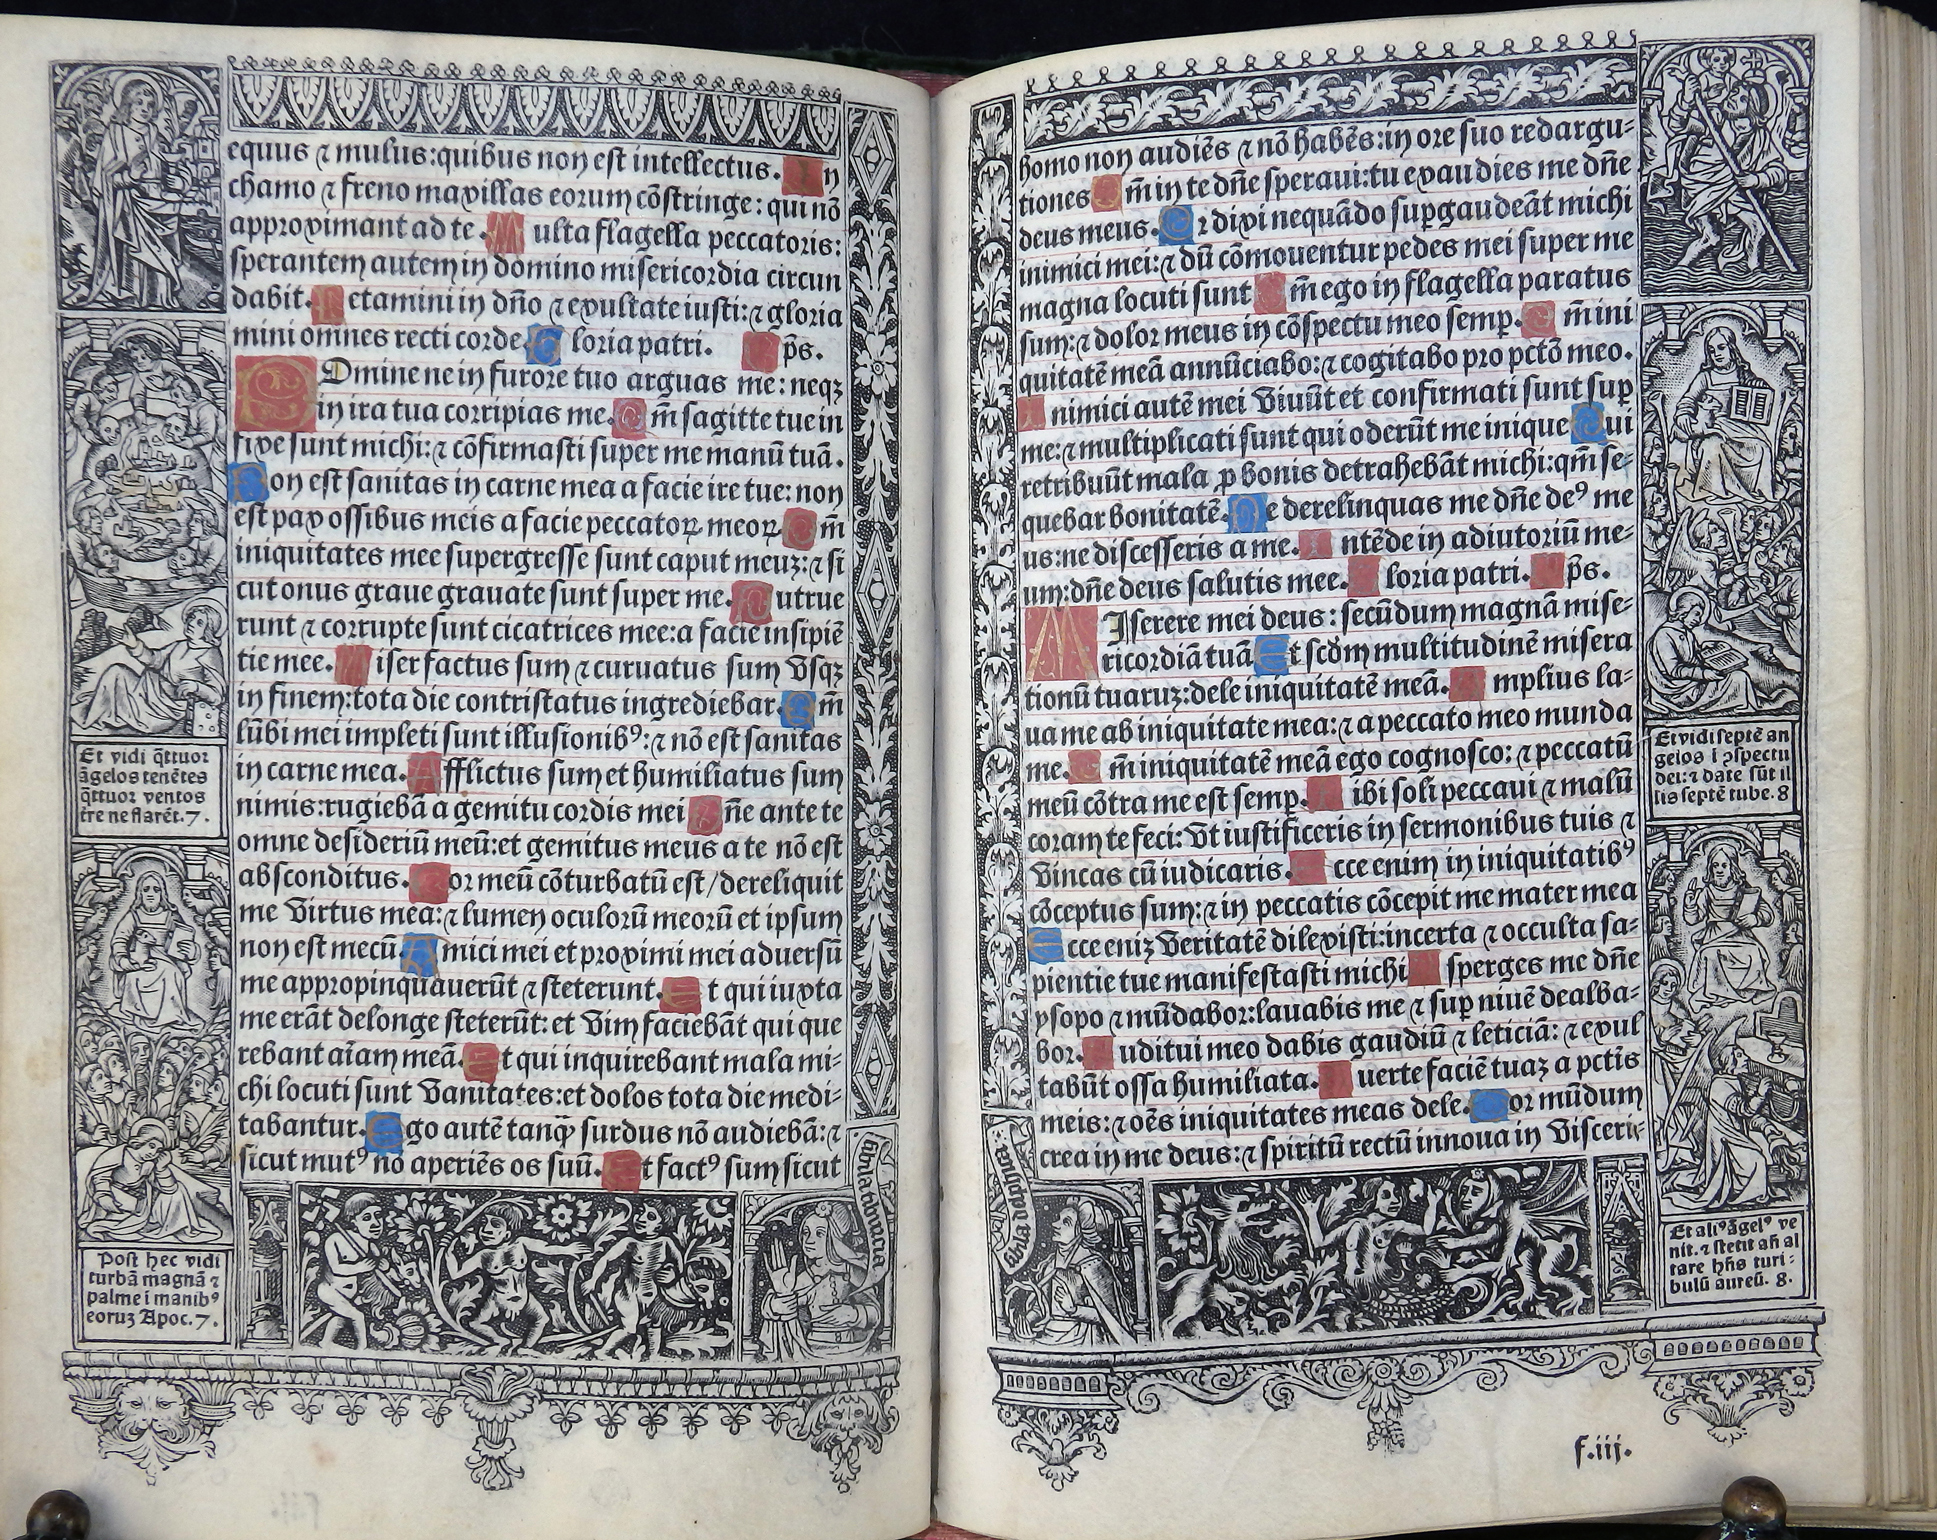 equus ⁊ mulus:quibus non est intellectus. In
chamo ⁊ freno maxillas eorum cōstringe: qui nō
approximant ad te. Multa flagella peccatoris:
sperantem autem in domino misericordia circun
dabit. Letamini in dn̄o ⁊ exultate iusti:⁊ gloria
mini omnes recti corde Gloria patri. ps̄.
Domine ne in furore tuo arguas me: neqꝫ
in ira tua corripias me. Qm̄ sagitte tue in
fixe sunt michi:⁊ cōfirmasti super me manū tuā.
Non est sanitas in carne mea a facie ire tue: non
est pax ossibus meis a facie peccatoꝝ meoꝝ. Qm̄
iniquitates mee supergresse sunt caput meuꝫ:⁊ si
cut onus graue grauate sunt super me. Putrue
runt ⁊ corrupte sunt cicatrices mee:a facie insipiē
tie mee. Miser factus sum ⁊ curuatus sum vsqꝫ
in finem:tota die contristatus ingrediebar. Qm̄
lūbi mei impleti sunt illusionibꝰ:⁊ nō est sanitas
in carne mea. Afflictus sum et humiliatus sum
nimis:rugiebā a gemitu cordis mei Dn̄e ante te
omne desideriū meū:et gemitus meus a te nō est
absconditus. Cor meū cōturbatū est/dereliquit
me virtus mea:⁊ lumen oculorū meorū et ipsum
non est mecū Amici mei et proximi mei aduersū
me appropinquauerūt ⁊ steterunt. Et qui iuxta
me erāt de longe steterūt: et vim faciebāt qui que
rebant aīam meā. Et qui inquirebant mala mi-
chi locuti sunt vanitates:et dolos tota die medi-
tabantur. Ego autē tanq̄ surdus nō audiebā:⁊
sicut mutꝰ nō aperiēs os suū. Et factꝰ sum sicut
Et vidi q̄ttuor
āgelos tenētes
q̄ttuor ventos
t̄re ne flarēt. 7.
Post hec vidi
turbā magnā ⁊
palme i manibꝰ
eoruꝫ Apoc. 7.
homo non audiēs ⁊ nō habēs:in ore suo redargu-
tiones Qm̄ in te dn̄e speraui:tu exaudies me dn̄e
deus meus. Qr dixi nequādo suꝑgaudeāt michi
inimici mei:⁊ dū cōmouentur pedes mei super me
magna locuti sunt Qm̄ ego in flagella paratus
sum:⁊ dolor meus in cōspectu meo semꝑ. Qm̄ ini
quitatē meā annūciabo:⁊ cogitabo pro pctō meo.
Inimici autē mei viuūt et confirmati sunt suꝑ
me:⁊ multiplicati sunt qui oderūt me inique Qui
retribuūt mala ꝓ bonis detrahebāt michi:qm̄ se-
quebar bonitatē. Ne derelinquas me dn̄e deꝰ me
us:ne discesseris a me. Intēde in adiutoriū me-
um:dn̄e deus salutis mee. Gloria patri. ps̄.
MIserere mei deus: secūdum magnā mise-
ricordiā tuā Et scd̄m multitudinē misera
tionū tuaruꝫ:dele iniquitatē meā. Amplius la-
ua me ab iniquitate mea:⁊ a peccato meo munda
me. Qm̄ iniquitatē meā ego cognosco: ⁊ peccatū
meū cōtra me est semꝑ. Tibi soli peccaui ⁊ malū
coram te feci: vt iustificeris in sermonibus tuis ⁊
vincas cū iudicaris. Ecce enim in iniquitatibꝰ
cōceptus sum:⁊ in peccatis cōcepit me mater mea
Ecce eniꝫ veritatē dilexisti:incerta ⁊ occulta sa-
pientie tue manifestasti michi Asperges me dn̄e
ysopo ⁊ mūdabor:lauabis me ⁊ suꝑ niuē dealba-
bor. Auditui meo dabis gaudiū ⁊ leticiā: ⁊ exul
tabūt ossa humiliata. Auerte faciē tuaꝫ a pctīs
meis:⁊ oēs iniquitates meas dele. Cor mūdum
crea in me deus:⁊ spiritū rectū innoua in visceri-
Et vidi septē an
gelos ī ꝯspectu
dei:⁊ date sūt il
lis septē tube. 8
Et aliꝰ āgelꝰ ve
nit. ⁊ stetit añ al
tare hn̄s turi-
bulū aureū. 8.
f.iij.